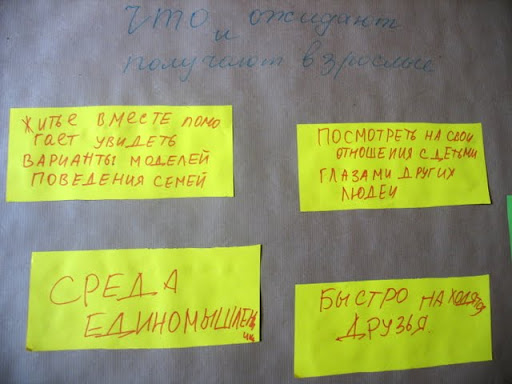 Что ожидают
и
получают взрослые
житьё вместе помо
гает увидеть
варианты моделей
поведения семей
посмотреть на свои
отношения с детьми
глазами других
людей
среда
единомышлен
быстро находятся
друзья